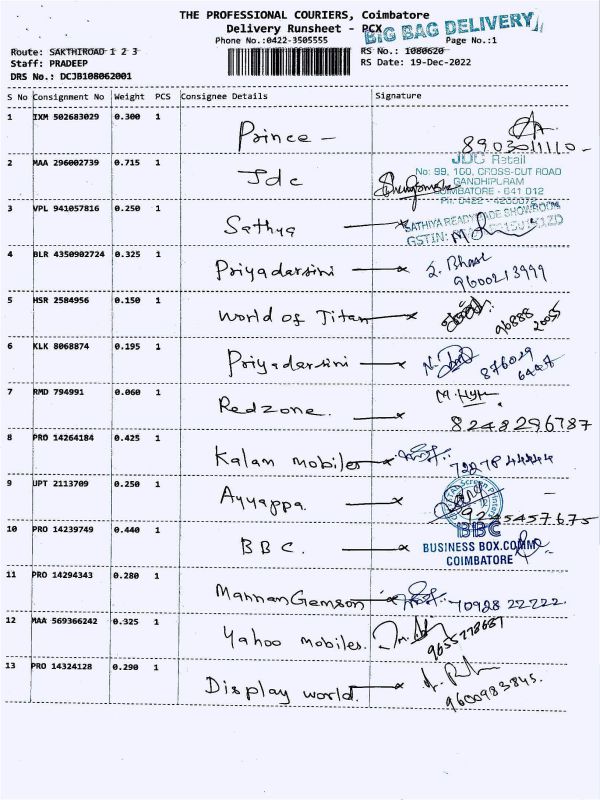 THE PROFESSIONAL COURIERS, Coimbatore
Delivery Runsheet - PCX
BIG BAG DELIVERY
Phone No.:0422-3505555
Page No.:1
Route: SAKTHIROAD 1 2 3
RS No.: 1080620
Staff: PRADEEP
RS Date: 19-Dec-2022
DRS No.: DCJB108062001
S No Consignment No Weight PCS Consignee Details Signature
1 IXM 502683029 0.300 1
Prince -
8903011110-
2 MAA 296002739 0.715 1
Jdc
JDC Retail
No: 99, 100, CROSS-CUT ROAD
GANDHIPURAM
COIMBATORE - 641 012
Ph: 0422 - 4200072
3 VPL 941057816 0.250 1
Sathya
SATHIYA READYMADE SHOWROOM
GSTIN:
4 BLR 4350902724 0.325 1
Priyadarsini
9600213999
5 HSR 2584956 0.150 1
World of Titan
96888
2005
6 KLK 8068874 0.195 1
Priyadarsini
876029
7 RMD 794991 0.060 1
Redzone.
8248296787
8 PRO 14264184 0.425 1
Kalam mobiles
9 UPT 2113709 0.250 1
Ayyappa.
9245457675
10 PRO 14239749 0.440 1
BBC.
BBC
BUSINESS BOX.COMM
COIMBATORE
11 PRO 14294343 0.280 1
MannanGemson
70928 22222.
12 MAA 569366242 0.325 1
Yahoo mobiles.
13 PRO 14324128 0.290 1
Display world.
9600983845.